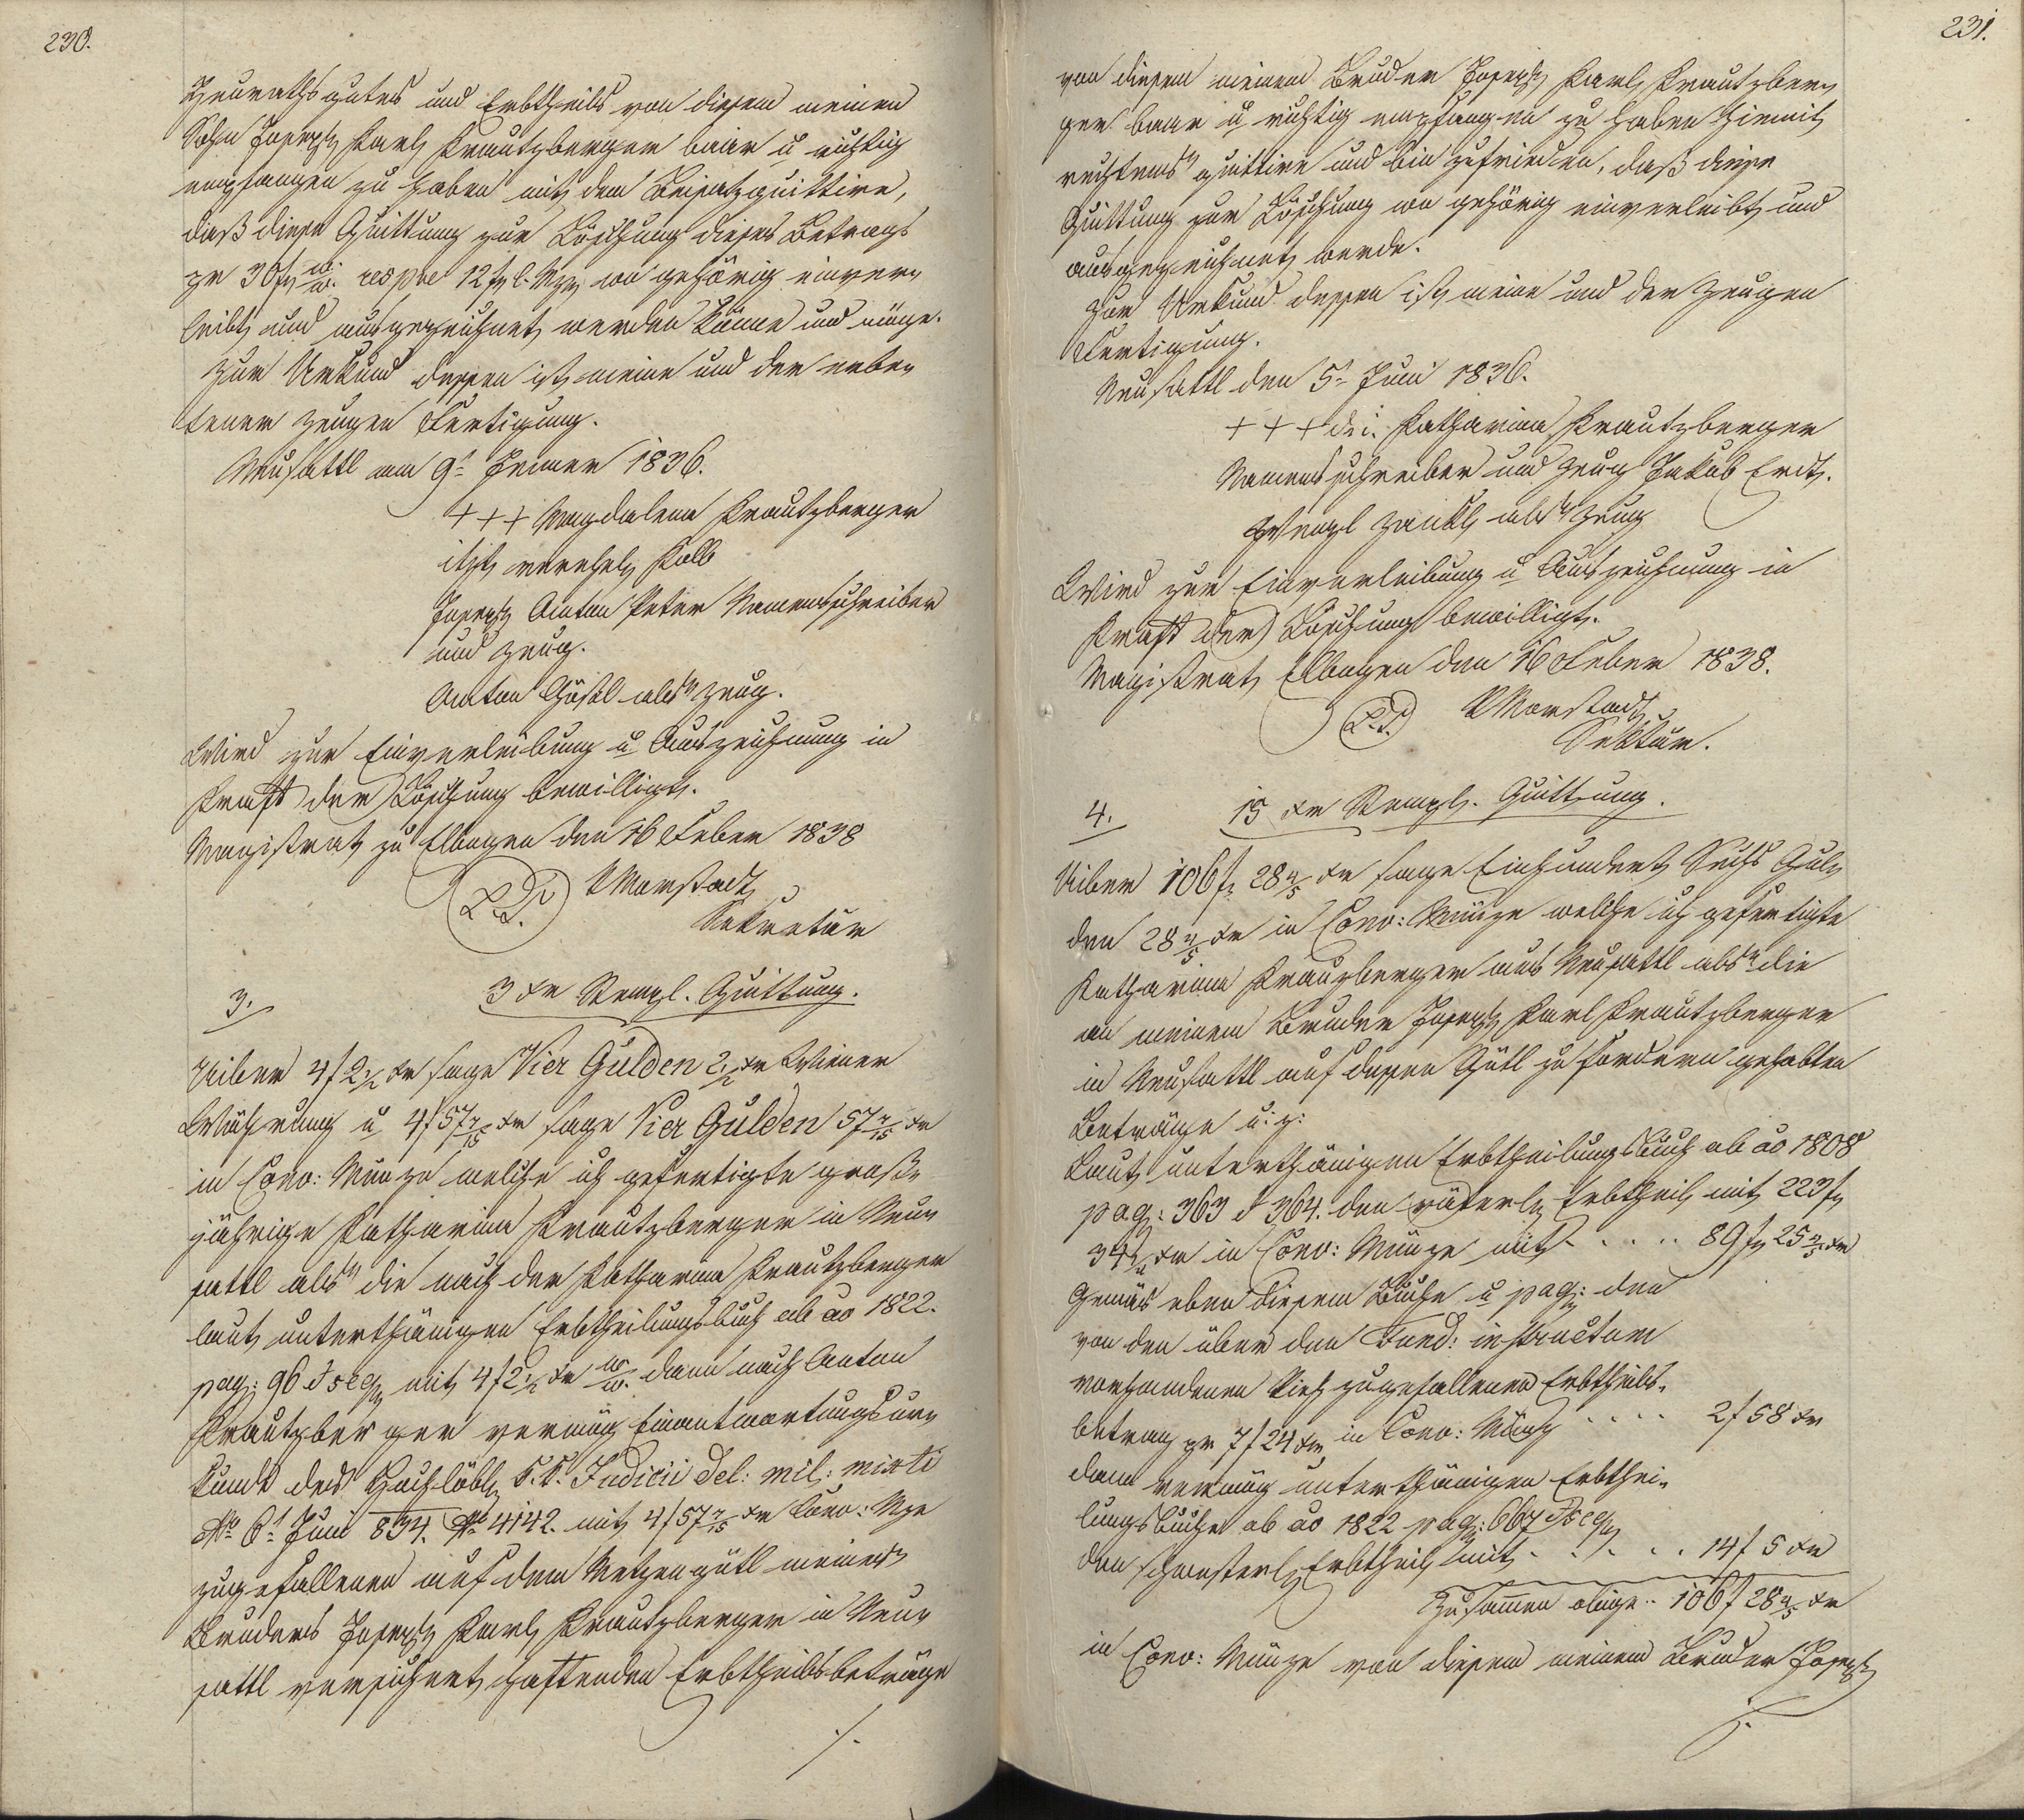 230.
Heuraths gutes und Erbtheils von diesem meinen
Sohn Joseph Karl Krautzberger baar u richtig
empfangen zu haben mit dem Beisatz quittire,
daß diese Quittung zur Löschung dieses Betrags
pr 30 f w. w. respve 12 f C. Mze wo gehörig einver
leibt und ausgezeichnet werden könne und möge.
Zur Urkund dessen ist meine und der erbe
tener Zeugen Fertigung.
Neusattl am 9t Jenner 1836.
+++ Magdalena Krautzberger
itzt verehel Kolb
Joseph Anton Peter Namensschreiber
und Zeug.
Anton Gößl als Zeug.
Wird zur Einverleibung u Auszeichnung in
Kraft der Löschung bewilligt.
Magistrat zu Elbogen den 16 Feber 1838
L. S. Marstadt
Sekretär
3. 3 xr Stempl. Quittung.
Uiber 4 f 2 1/2 xr sage Vier Gulden 2 1/2 xr Wiener
Währung u 4 f 57 7/15 xr sage Vier Gulden 57 7/15 xr
in Conv: Münze welche ich gefertigte groß
jährige Katharina Krautzberger in Neu
sattl als die nach der Katharina Krautzberger
laut unterthänigen Erbtheilungsbuch ab ao 1822.
pag: 96 & seq mit 4 f 2 1/2 xr w. w. dann nach Anton
Krautzberger vermög Einantwortungsur
kunde des Hochlöbl k. k. Judicii del: mil: mixti
dto 6t Juni 834. No 4142. mit 4 f 57 7/15 xr Conv: Mze
zugefallenen auf dem Metzengütl meines
Bruders Joseph Karl Krautzberger in Neu
sattl versichert haftenden Erbtheilsbeträge
./.
231.
von diesem meinem Bruder Joseph Karl Krautzber
ger baar u richtig empfangen zu haben hiemit
rechtens quittire und bin zufrieden, daß diese
Quittung zur Löschung wo gehörig einverleibt und
ausgezeichnet werde.
Zur Urkund dessen ist meine und der Zeugen
Fertigung.
Neusattl den 5t Juni 1836.
+++ d. i. Katharina Krautzberger
Namensschreiber und Zeug Jakob Erdt.
Wenzl Zankl als Zeug
Wird zur Einverleibung u Auszeichnung in
Kraft der Löschung bewilligt.
Magistrat Elbogen den 16 Feber 1838.
L. S. Marstadt
Sektär.
4. 15 xr Stempl. Quittung.
Uiber 106 f 28 4/5 xr sage Einhundert Sechs Gul
den 28 4/5 xr in Conv: Münze welche ich gefertigte
Katharina Krauzberger aus Neusattl als die
an meinem Bruder Joseph Karl Krautzberger
in Neusattl auf dessen Gütl zu fordern gehabten
Beträge u. z:
Laut unterthänigen Erbtheilungsbuch ab ao 1808
pag: 363 & 364. den väterl Erbtheil mit 223 f
34 1/2 xr in Conv: Münze mit . . . . . 89 f 25 4/5 xr
Gemäs eben diesem Buche u pag: den
von den über den Fund: instructum
vorhandenen Vieh zugefallenen Erbtheils
betrag pr 7 f 24 xr in Conv: Münz . . . . 2 f 58 xr
dann vermög unterthänigen Erbthei
lungsbuche ab ao 1822 pag: 667 & seq
den schwesterl Erbtheil mit . . . . . 14 f 5 xr
Zusamen obige .. 106 f 28 4/5 xr
in Conv: Münze von diesem meinem Bruder Joseph
./.